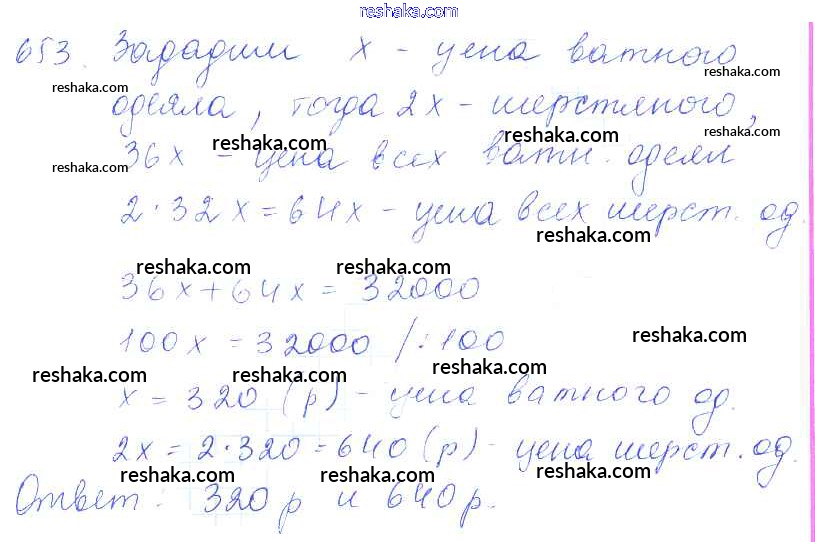 reshaka.com
653. Зададим x - цена ватного
reshaka.com
reshaka.com
одеяла, тогда 2x - шерстяного,
reshaka.com
reshaka.com
reshaka.com
36x - цена всех ватн. одеял
reshaka.com
reshaka.com
2·32x = 64x - цена всех шерст. од.
reshaka.com
reshaka.com
reshaka.com
36x + 64x = 32000
100x = 32000 /:100
reshaka.com
reshaka.com
reshaka.com
reshaka.com
x = 320 (р) - цена ватного од.
2x = 2·320 = 640 (р) - цена шерст. од.
reshaka.com
reshaka.com
reshaka.com
Ответ: 320 р и 640 р.